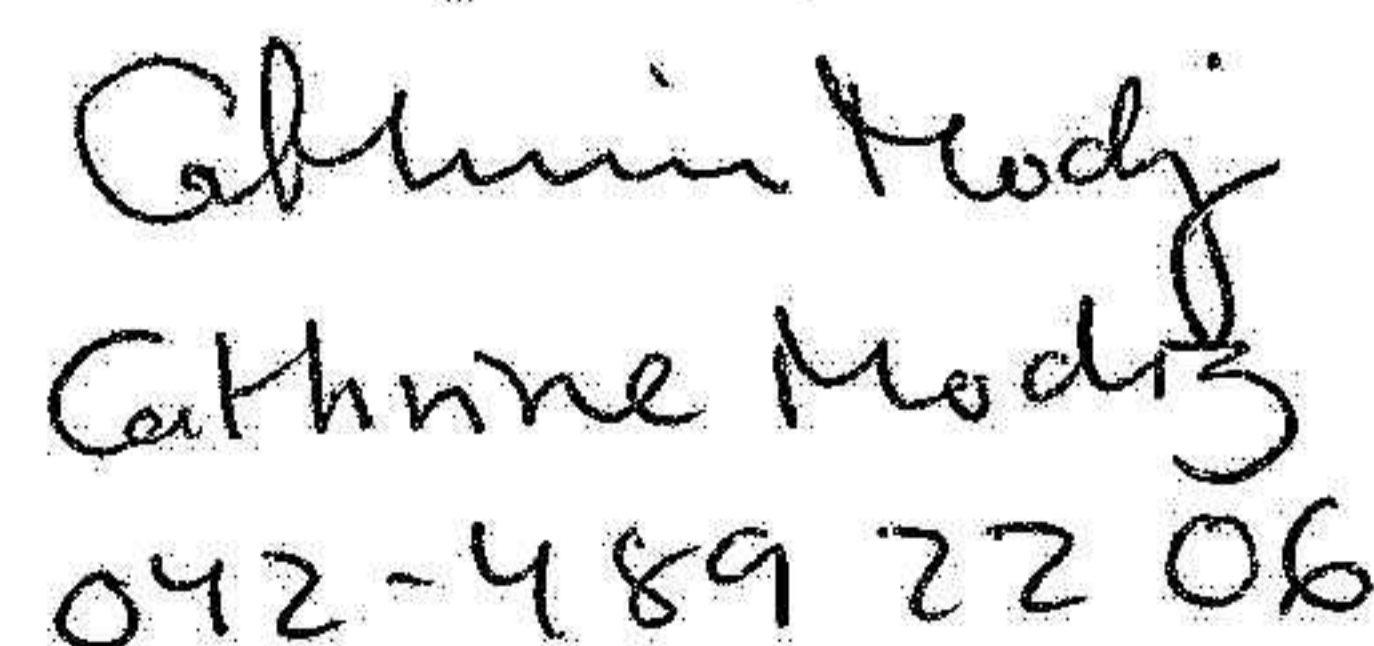 Cathrine Modig
Cathrine Modig
042-489 22 06